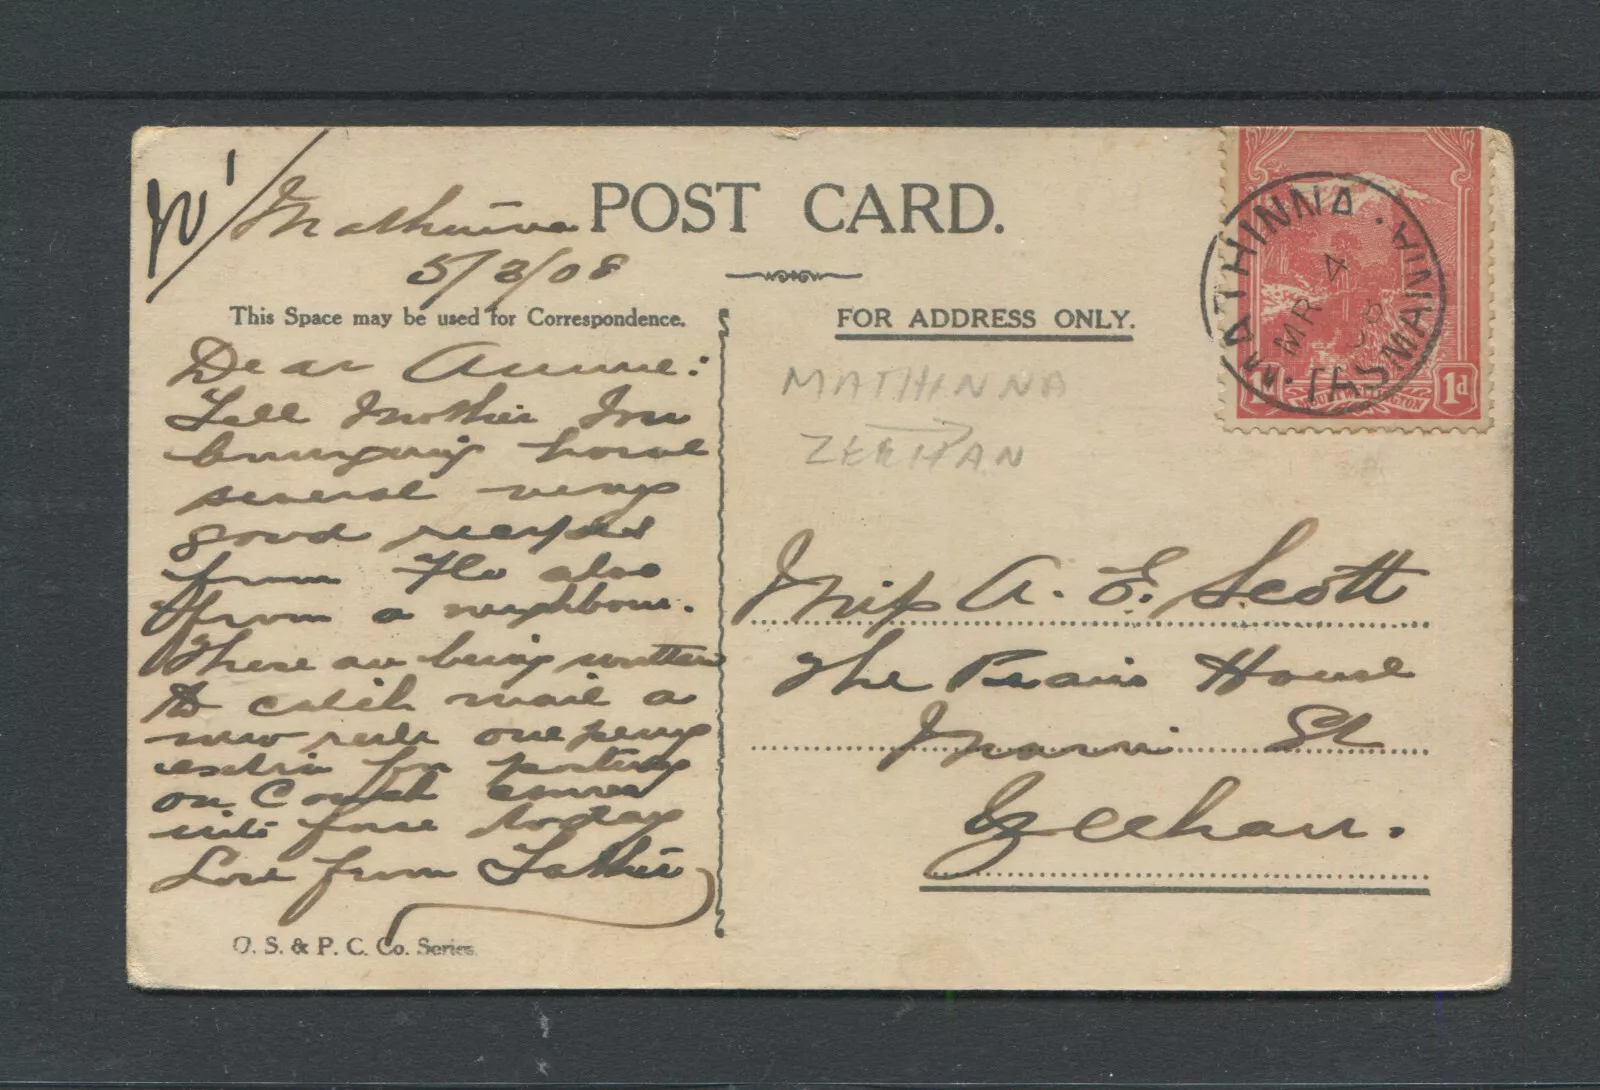 Mathinna
5/3/08
POST CARD.
This Space may be used for Correspondence.
FOR ADDRESS ONLY.
MATHINNA
ZEEHAN
MATHINNA. TASMANIA
MR 4
08
1d
MOUNT WELLINGTON
1d
Dear Annie:
Tell Mother I'm
bringing home
several very
good recipes
from Flo also
from a neighbour.
These are being written
to catch mail a
new rule one penny
extra for posting
on Coach comes
into force today
Love from Father
Miss A. E. Scott
The House
Main St
Zeehan.
O. S. & P. C. Co. Series.